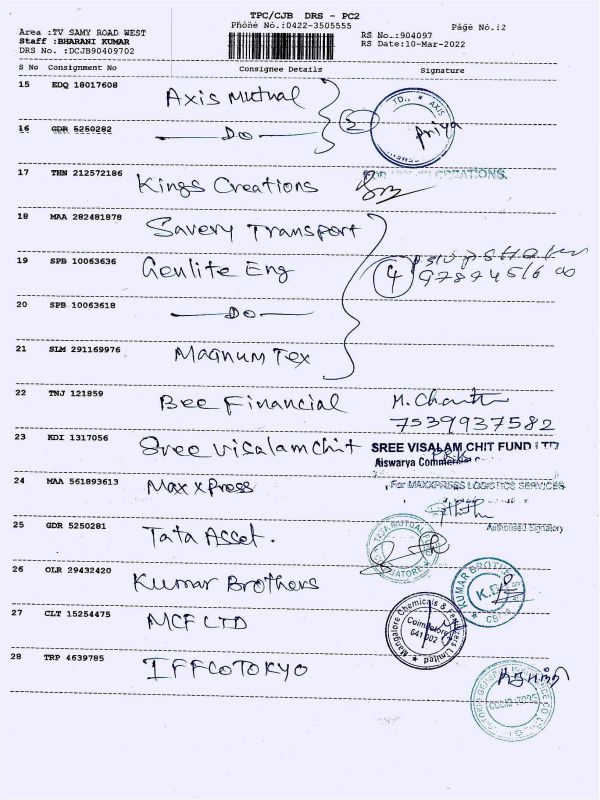 TPC/CJB DRS - PC2
Phone No.:0422-3505555
Area :TV SAMY ROAD WEST
Staff :BHARANI KUMAR
DRS No. :DCJB90409702
RS No..:904097
RS Date:10-Mar-2022
Page No.:2
S No Consignment No Consignee Details Signature
15 EDQ 18017608 Axis Mutual
TD., ★ AXIS
Priya
16 GDR 5250282 DO
17 THN 212572186 Kings Creations
CREATIONS.
18 MAA 282481878 Savery Transport
19 SPB 10063636 Genlite Eng
4
20 SPB 10063618 DO
21 SLM 291169976 Magnum Tex
22 TNJ 121859 Bee Financial
7539937582
23 KDI 1317056 Sree Visalam Chit
SREE VISALAM CHIT FUND LTD
Aiswarya
24 MAA 561893613 Max xpress
For MAXXPRESS LOGISTICS SERVICES
Authorised Signatory
25 GDR 5250281 Tata Asset.
TATA MUTUAL
26 OLR 29432420 Kumar Brothers
KUMAR BROTHERS
K.B
27 CLT 15254475 MCF LTD
Mangalore Chemicals & Fertilizers Limited
Coimbatore
641 002
28 TRP 4639785 IFFCO TOKYO